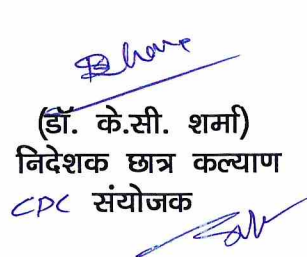 (डॉ. के.सी. शर्मा)
निदेशक छात्र कल्याण
CPC संयोजक